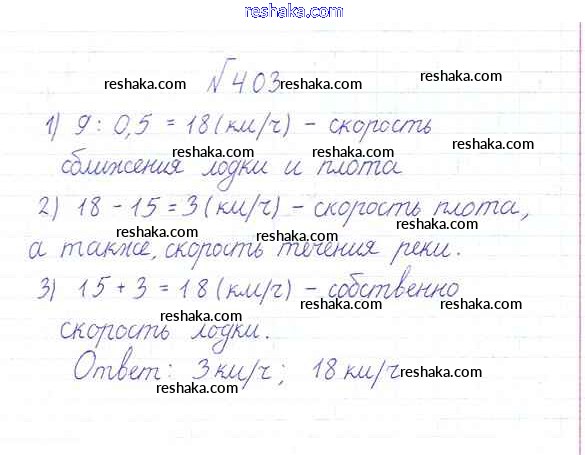 reshaka.com
№403
reshaka.com reshaka.com reshaka.com
1) 9 : 0,5 = 18 (км/ч) - скорость
reshaka.com reshaka.com
сближения лодки и плота
reshaka.com
2) 18 - 15 = 3 (км/ч) - скорость плота,
reshaka.com reshaka.com
а также, скорость течения реки.
reshaka.com reshaka.com
3) 15 + 3 = 18 (км/ч) - собственно
reshaka.com reshaka.com
скорость лодки.
reshaka.com
Ответ: 3 км/ч; 18 км/ч
reshaka.com reshaka.com
reshaka.com